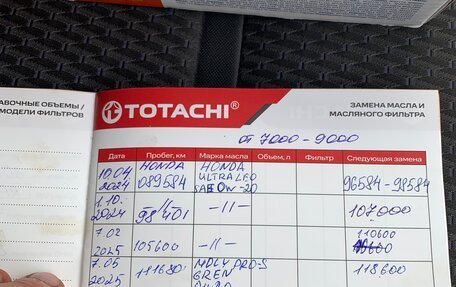 АВОЧНЫЕ ОБЪЕМЫ /
МОДЕЛИ ФИЛЬТРОВ
TOTACHI®
ЗАМЕНА МАСЛА И
МАСЛЯНОГО ФИЛЬТРА
от 7000 - 9000
Дата
Пробег, км
Марка масла
Объем, л
Фильтр
Следующая замена
10.04
2024
HONDA
089584
HONDA
ULTRA LEO
SAE 0W-20
96584 - 98584
1.10.
2024
-//-
98401
-//-
107000
7.02
2025
105600
-//-
110600
7.05
2025
111680
MOLY PRO-S
GREN
118600